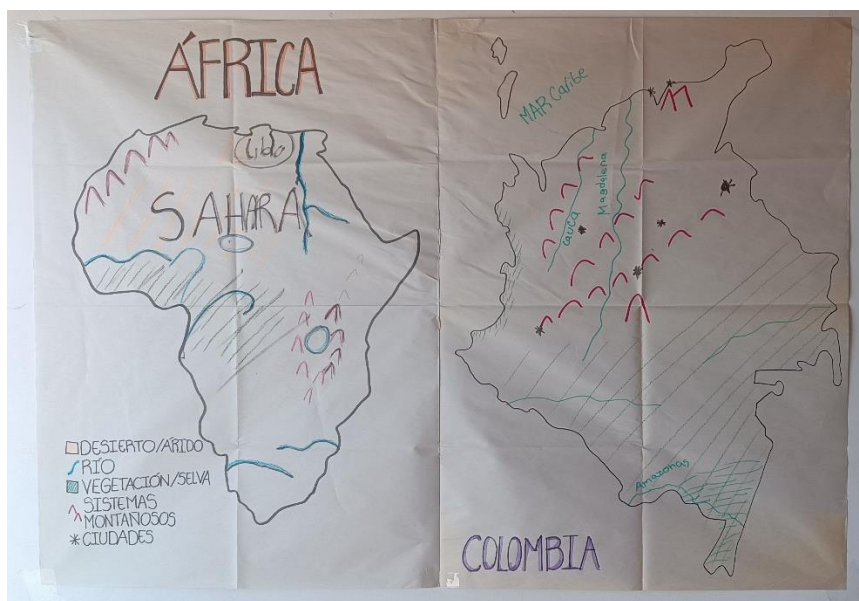 ÁFRICA
Libia
SAHARA
DESIERTO/ÁRIDO
RÍO
VEGETACIÓN/SELVA
SISTEMAS
MONTAÑOSOS
CIUDADES
MAR Caribe
Cauca
Magdalena
Amazonas
COLOMBIA